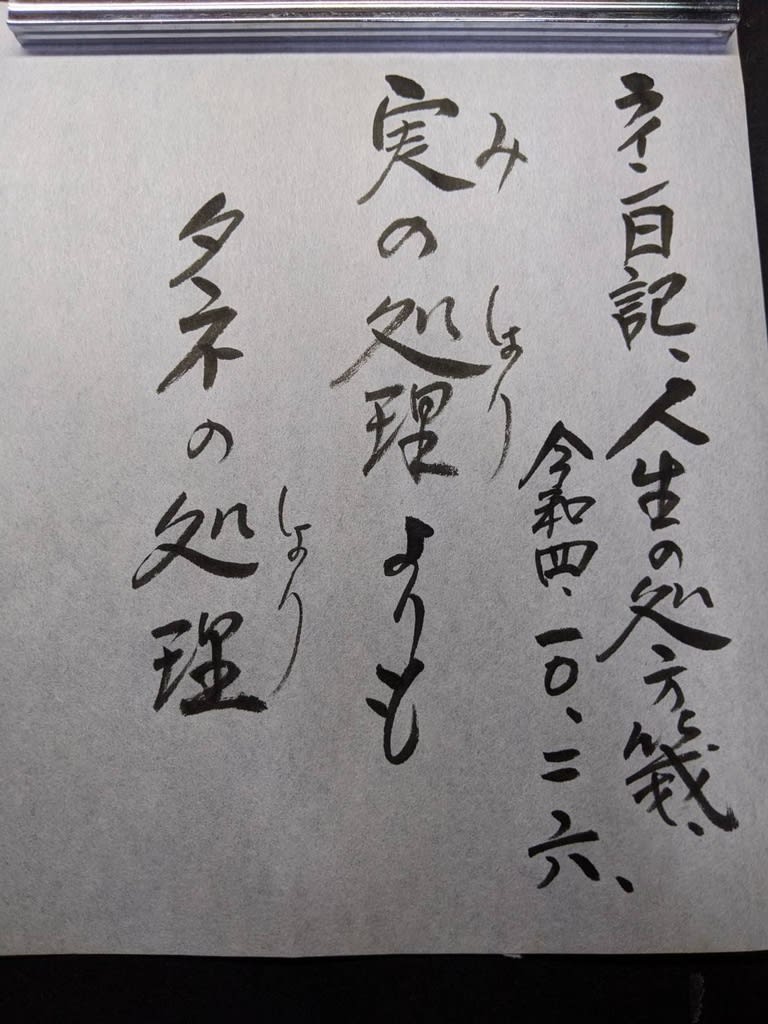 ライン日記、人生の処方箋、
令和四、一〇、二六、
み
実の処理よりも
しょり
タネの処理
しょり